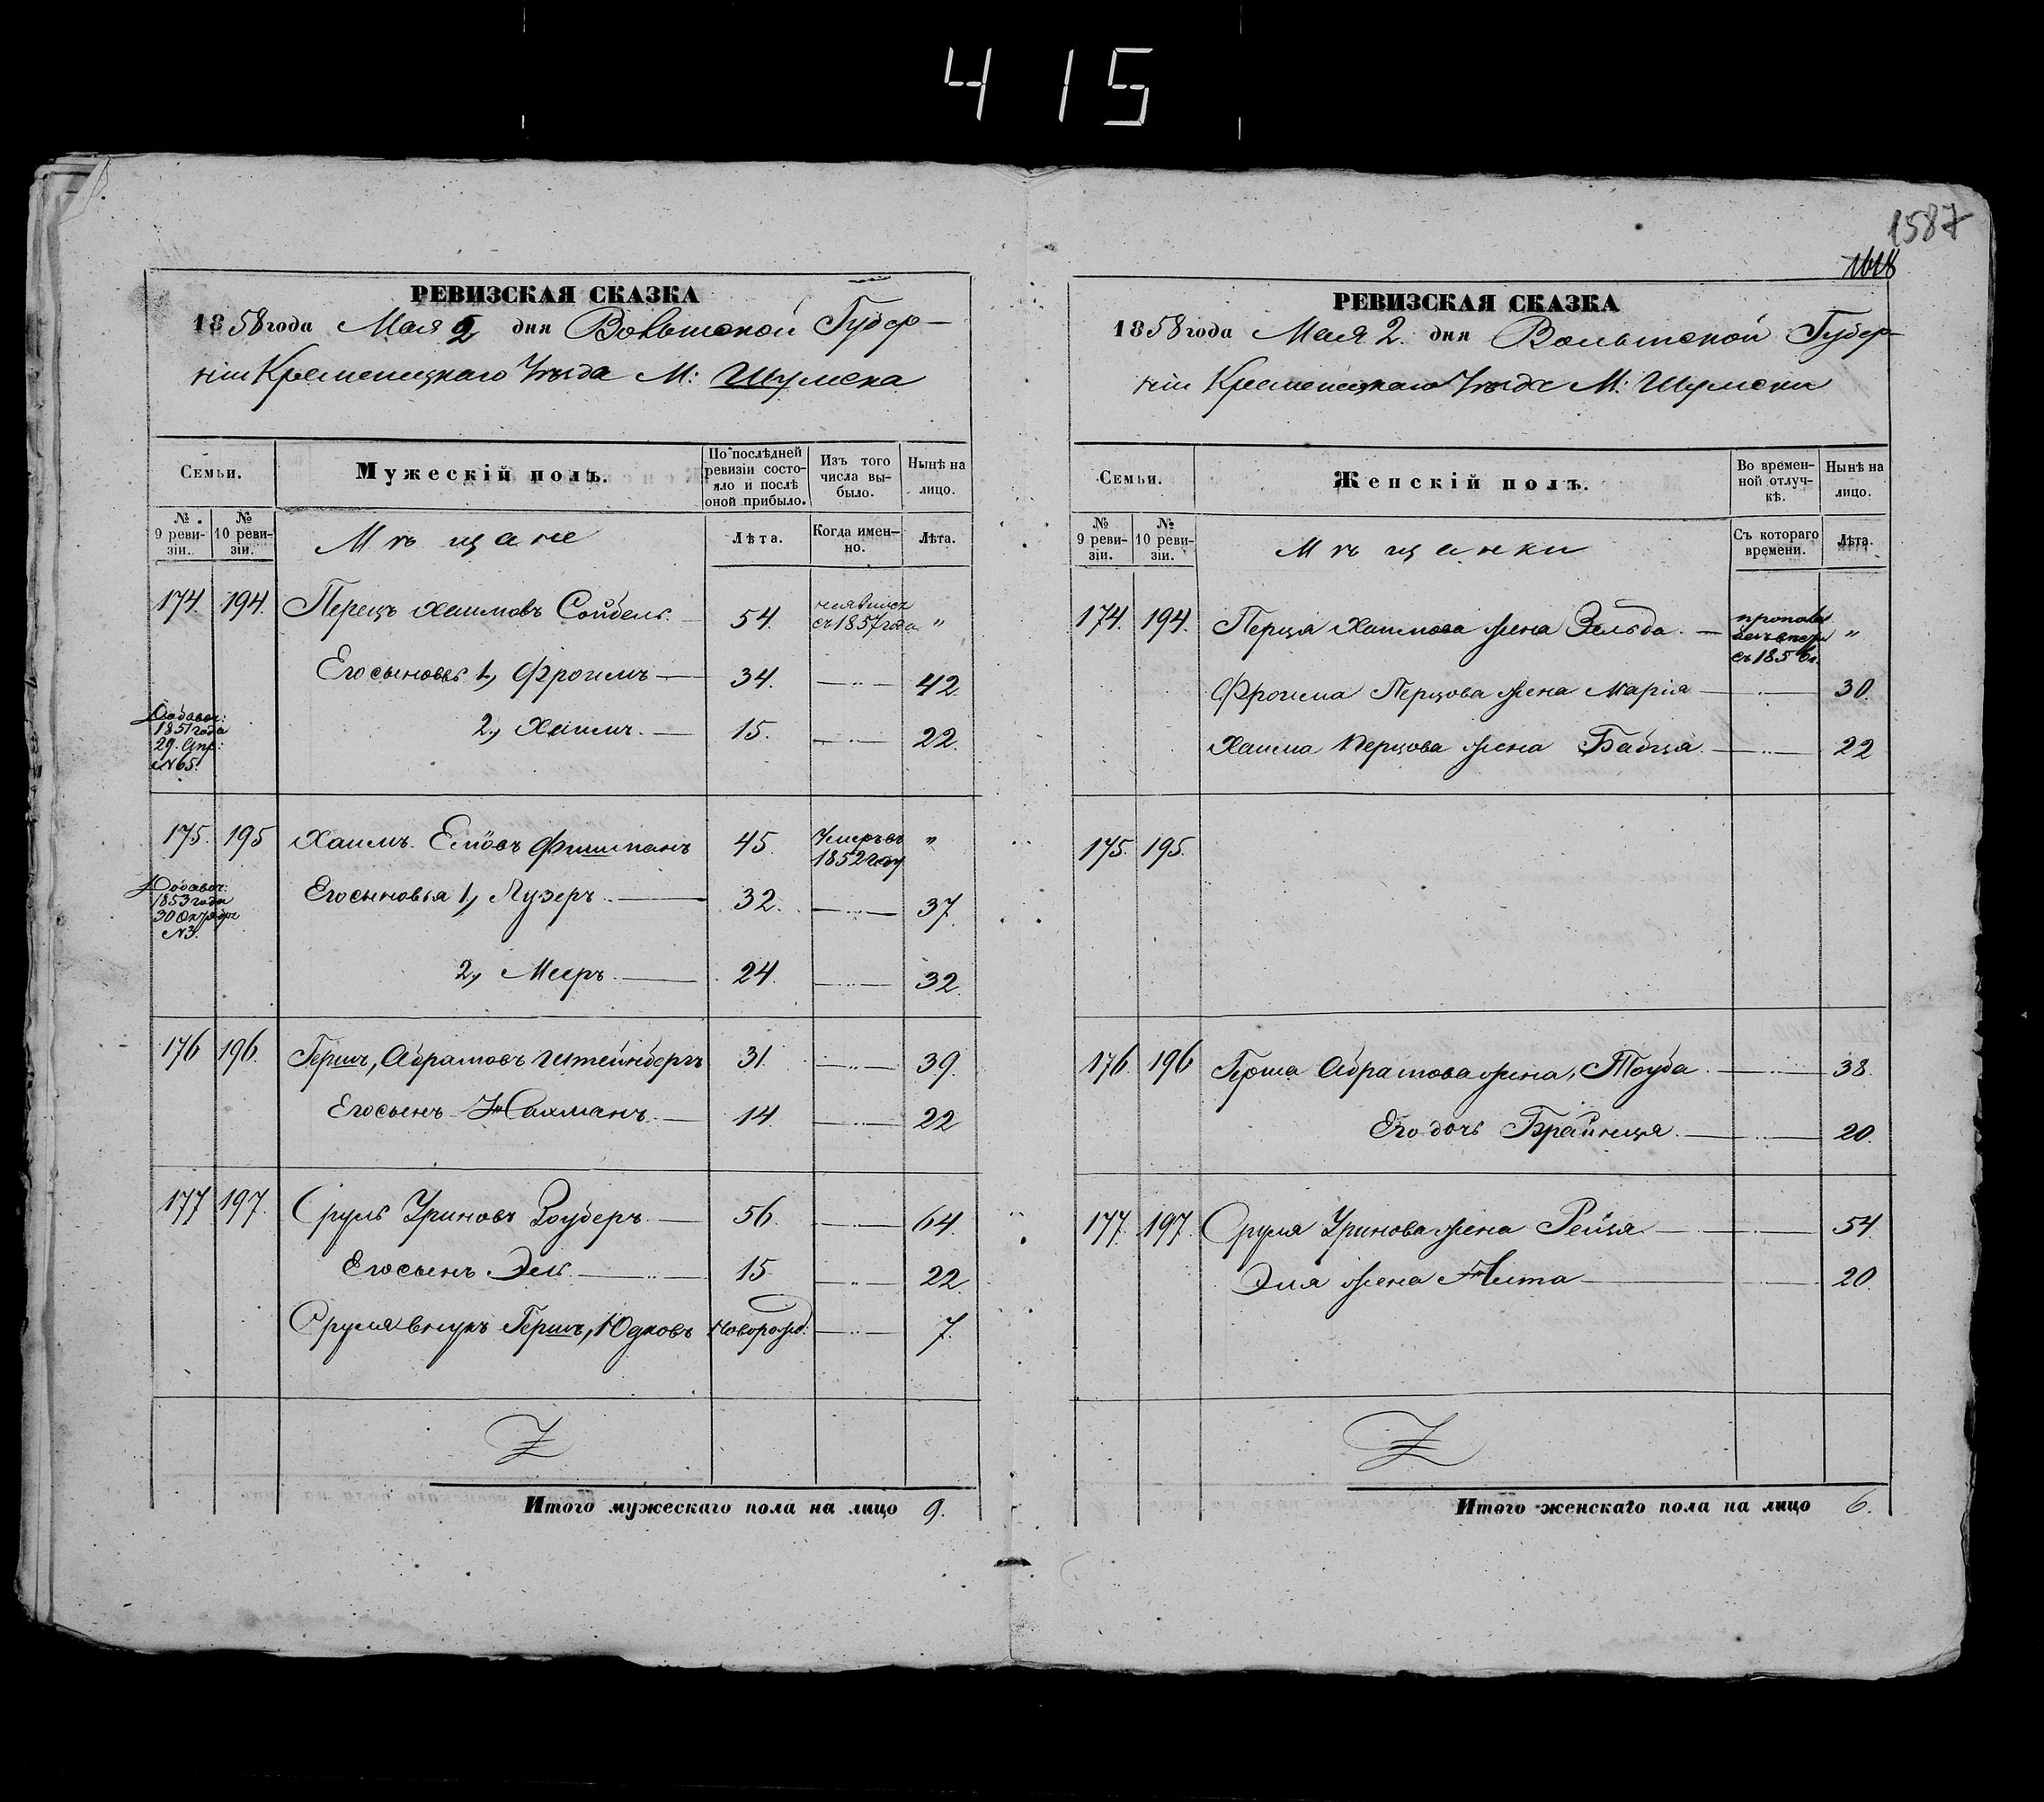 4 15
1587
1618
РЕВИЗСКАЯ СКАЗКА
1858 года Мая 2 дня Волынской Губер-
ніи Кременецкаго Уѣзда М: Шумска
Семьи.
Мужескій полъ.
По послѣдней ревизіи состо-
яло и послѣ оной прибыло.
Изъ того числа вы-
было.
Нынѣ на лицо.
№ 9 реви-
зіи.
№ 10 реви-
зіи.
Мѣщане
Лѣта.
Когда имен-
но.
Лѣта.
174. 194. Перецъ Хаимовъ Сойбель. 54. неявился съ 1857 года "
Его сыновья 1, Фроимъ 34. 42.
2, Хаимъ. 15. 22.
Добавоч:
1851 года
29. Апр:
№65.
175. 195 Хаимъ Фишманъ 45. Умеръ въ 1852 году "
Его сыновья 1, Лузеръ 32. 37.
Добавоч:
1853 года
30 Октября
№3.
2, Мееръ 24. 32.
176 196. Гершъ, Абрамовъ Штейнбергъ 31. 39.
Его сынъ Нахманъ 14. 22
177 197. Сруль Уриновъ Зоуберъ 56. 64.
Его сынъ Эль 15 22.
Сруля внукъ Гершъ, Юдковъ Новорожд: 7.
Итого мужескаго пола на лицо 9.
РЕВИЗСКАЯ СКАЗКА
1858 года Мая 2. дня Волынской Губер-
ніи Кременецкаго Уѣзда М: Шумска
Семьи.
Женскій полъ.
Во времен-
ной отлуч-
кѣ.
Нынѣ на лицо.
№ 9 реви-
зіи.
№ 10 реви-
зіи.
Мѣщанки
Съ котораго времени.
Лѣта.
174. 194. Перца Хаимова жена Зельда. съ 1856 г. "
Фроима Перцова жена Марія 30.
Хаима Перцова жена Бабця 22
175. 195.
176. 196 Герша Абрамова жена, Тоуба 38.
Его дочь Брайнця. 20.
177. 197. Сруля Уринова жена Рейзя 54.
Эля жена 20.
Итого женскаго пола на лицо 6.